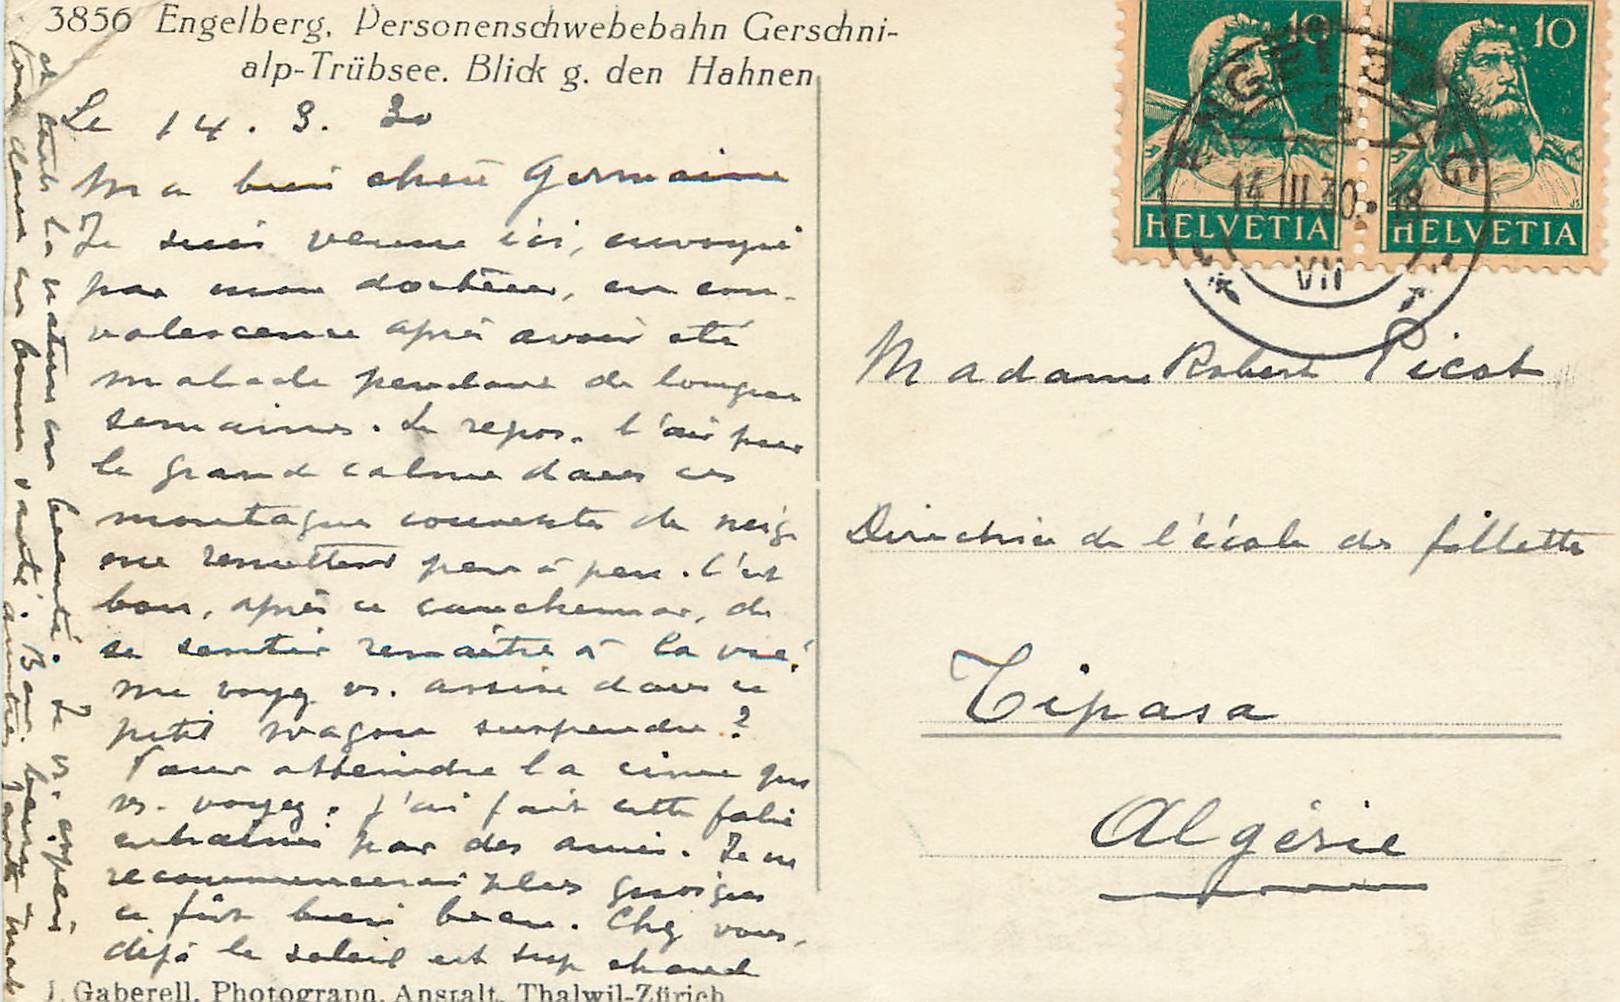 3856 Engelberg, Personenschwebebahn Gerschni-
alp-Trübsee. Blick g. den Hahnen
Le 14. 3. 30
Ma bien chère Germaine
Je suis venue ici, envoyée
par mon docteur, en con-
valescence après avoir été
malade pendant de longues
semaines. Le repos, l'air pur
le grand calme dans ces
montagnes couvertes de neige
me remettent peu à peu. C'est
bon, après ce cauchemar, de
se sentir renaître à la vie!
me voyez vs. assise dans ce
petit wagon suspendu?
Pour atteindre la cime que
vs. voyez, j'ai fait cette folie
entraînée par des amis. Je ne
recommencerai plus quoique
ce fût bien beau. Chez vous,
déjà le soleil est trop chaud
et toute la nature en beauté. Je vs.
en bonne santé. Bons baisers
HELVETIA 10
HELVETIA 10
14 III 30 18
VII
Madame Robert Picot
Directrice de l'école des fillettes
Tipasa
Algérie
J. Gaberell, Photograph. Anstalt, Thalwil-Zürich